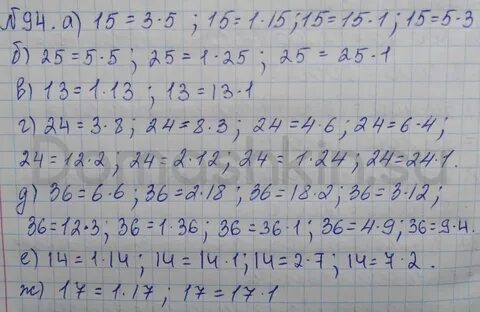 №94. а) 15 = 3·5 ; 15 = 1·15; 15 = 15·1; 15 = 5·3
б) 25 = 5·5; 25 = 1·25; 25 = 25·1
в) 13 = 1·13; 13 = 13·1
г) 24 = 3·8; 24 = 8·3; 24 = 4·6; 24 = 6·4;
24 = 12·2; 24 = 2·12; 24 = 1·24; 24 = 24·1.
д) 36 = 6·6; 36 = 2·18; 36 = 18·2; 36 = 3·12;
36 = 12·3; 36 = 1·36; 36 = 36·1; 36 = 4·9; 36 = 9·4.
е) 14 = 1·14; 14 = 14·1; 14 = 2·7; 14 = 7·2.
ж) 17 = 1·17; 17 = 17·1
Domashkin.su